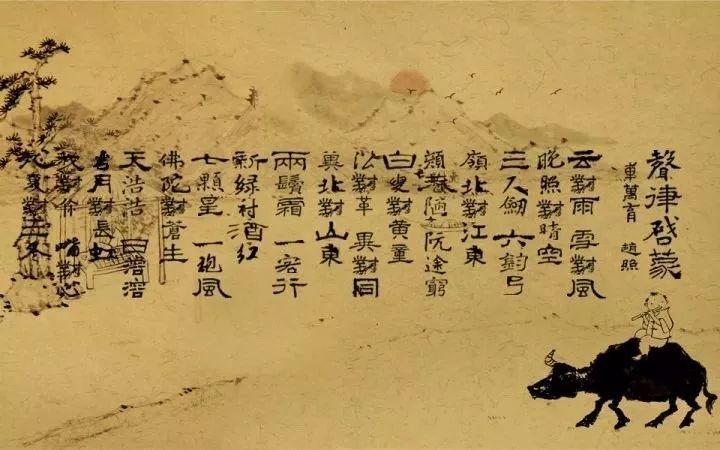 聲律啓蒙
車萬育 趙照
云對雨 雪對風
晚照對晴空
三尺劒 六鈞弓
嶺北對江東
顏巷陋 阮途窮
白叟對黃童
沿對革 異對同
冀北對山東
兩鬢霜 一客行
新綠衬酒紅
七顆星 一砲風
佛陀對蒼生
天浩浩 日溶溶
月對長虹
對你 對
夏對三冬